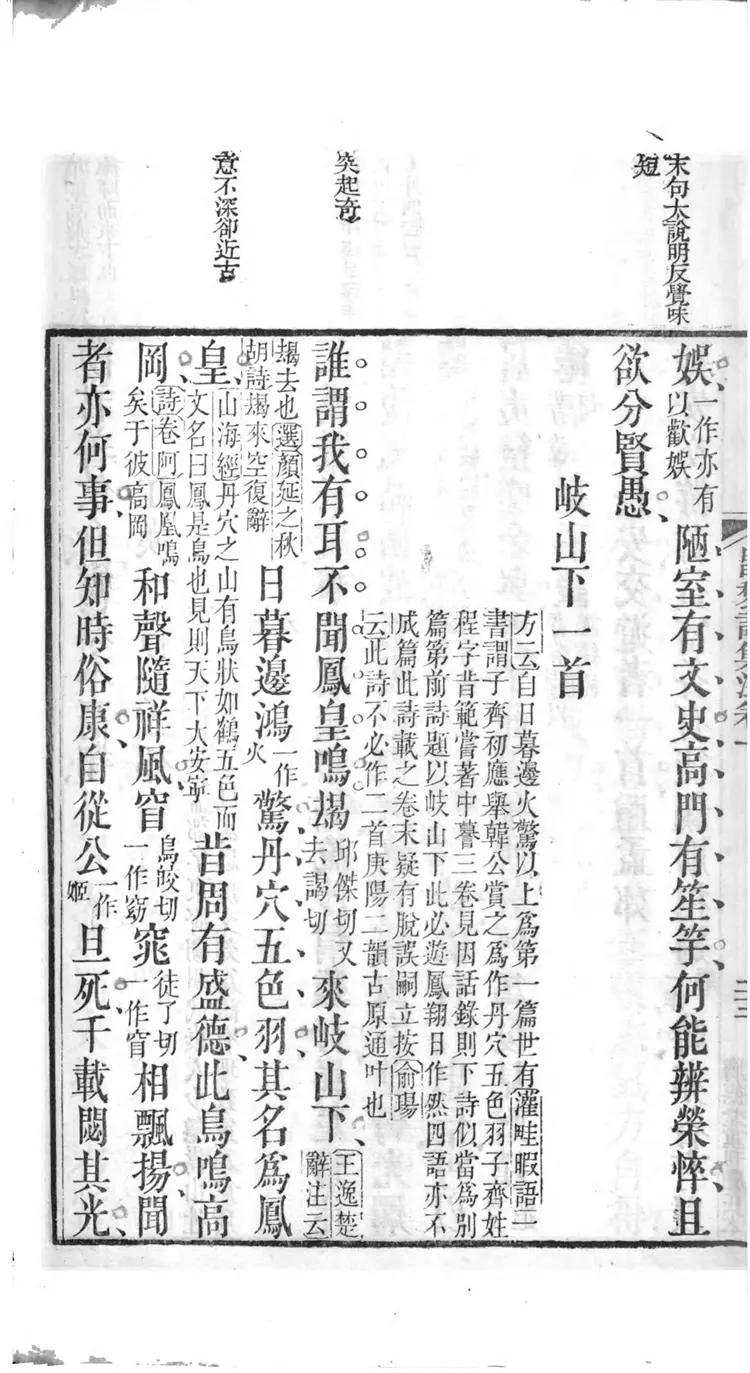 末句太說明反覺味
短
突起奇
意不深卻近古
娛一作亦有以歡娛陋室有文史高門有笙竽何能辨榮悴且
欲分賢愚
岐山下一首
方云自日暮邊火驚以上爲第一篇世有灌畦暇語一
書謂子齊初應舉韓公賞之爲作丹穴五色羽子齊姓
程字昔範嘗著中謩三卷見因話錄則下詩似當爲別
篇第前詩題以岐山下此必遊鳳翔日作然四語亦不
成篇此詩載之卷末疑有脫誤嗣立按俞瑒
云此詩不必作二首庚陽二韻古原通叶也
誰謂我有耳不聞鳳皇鳴朅邱傑切又去謁切來岐山下王逸楚辭注云
朅去也選顏延之秋胡詩朅來空復辭日暮邊鴻一作火驚丹穴五色羽其名爲鳳
皇山海經丹穴之山有鳥狀如鶴五色而文名曰鳳是鳥也見則天下大安寧昔周有盛德此鳥鳴高
岡詩卷阿鳳凰鳴矣于彼高岡和聲隨祥風窅烏皎切一作窈窕徒了切一作窅相飄揚聞
者亦何事但知時俗康自從公一作姬旦死千載閟其光